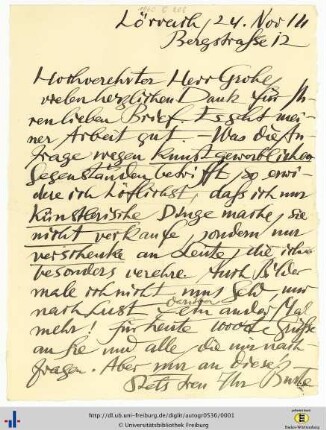 Lörrach, 24. Nov 14
Bergstraße 12
Hochverehrter Herr Grohe,
vielen herzlichen Dank für Ih-
ren lieben Brief. Es geht mei-
ner Arbeit gut. – Was die An-
frage wegen kunstgewerblichen
Gegenständen betrifft, so erwi-
dere ich höflichst, daß ich nur
künstlerische Dinge mache, sie
nicht verkaufe, sondern nur
verschenke an Leute, die ich
besonders verehre. Auch Bilder
male ich nicht ums Geld, nur
nach Lust. Ein ander Mal
mehr! Für heute 1000 Grüße
an Sie und alle die mir nach-
fragen. Aber nur an diese!
Stets treu Ihr
http://dl.ub.uni-freiburg.de/diglit/autogr0536/0001
© Universitätsbibliothek Freiburg